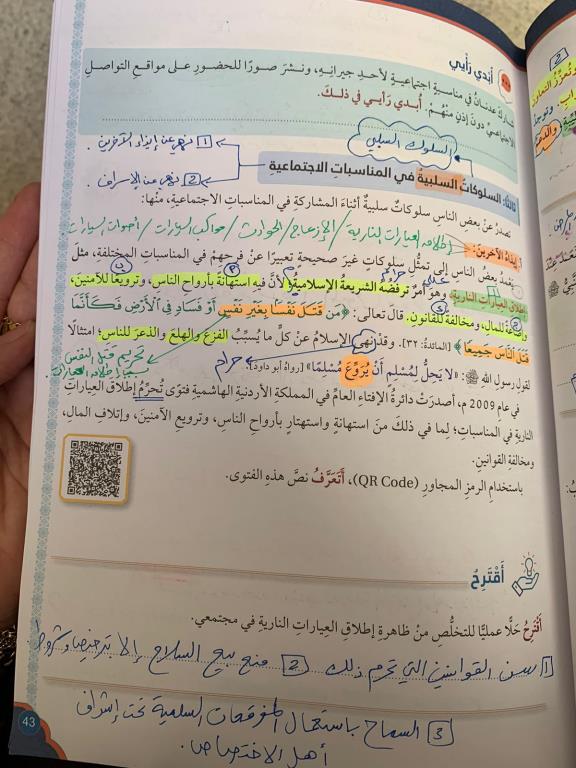 أُبدي رَأيي
شاركَ عدنانُ في مناسبةٍ اجتماعيةٍ لأحدِ جيرانِهِ، ونشرَ صورًا للحضورِ على مواقعِ التواصلِ
الاجتماعيِّ دونَ إذنٍ منْهُمْ. أُبدي رَأيي في ذلكَ.
السلوك السلبي
1 نهي عن إيذاء الآخرين.
2 نهي عن الإسراف.
ثالثًا: السلوكاتُ السلبيةُ في المناسباتِ الاجتماعيةِ
تصدرُ عنْ بعضِ الناسِ سلوكاتٌ سلبيةٌ أثناءَ المشاركةِ في المناسباتِ الاجتماعيةِ، منْها:
أ. إيذاءُ الآخرينَ:
إطلاق العيارات النارية / الإزعاج / الحوادث / مواكب السيارات / أصوات السيارات
يعمدُ بعضُ الناسِ إلى تمثُّلِ سلوكاتٍ غيرِ صحيحةٍ تعبيرًا عنْ فرحِهِمْ في المناسباتِ المختلفةِ، مثلَ
حرام
إطلاقِ العياراتِ الناريةِ، وهوَ أمرٌ ترفضُهُ الشريعةُ الإسلاميةُ؛ لأنَّ فيهِ استهانةً بأرواحِ الناسِ، وترويعًا للآمنينَ،
وإضاعةً للمالِ، ومخالفةً للقانونِ. قالَ تعالى: ﴿مَن قَتَلَ نَفْسًا بِغَيْرِ نَفْسٍ أَوْ فَسَادٍ فِي الْأَرْضِ فَكَأَنَّمَا
قَتَلَ النَّاسَ جَمِيعًا﴾ [المائدة: ٣٢]. وقدْ نهى الإسلامُ عنْ كلِّ ما يُسبِّبُ الفزعَ والهلعَ والذعرَ للناسِ؛ امتثالًا
لقولِ رسولِ اللهِ ﷺ: «لا يَحِلُّ لمُسْلِمٍ أَنْ يُرَوِّعَ مُسْلِمًا» [رواهُ أبو داودَ].
حرام
تحريم قتل النفس
بسبب إطلاق العيارات
في عامِ 2009 م، أصدرَتْ دائرةُ الإفتاءِ العامِّ في المملكةِ الأردنيةِ الهاشميةِ فتوًى تُحرِّمُ إطلاقَ العياراتِ
الناريةِ في المناسباتِ؛ لِما في ذلكَ منَ استهانةٍ واستهتارٍ بأرواحِ الناسِ، وترويعِ الآمنينَ، وإتلافِ المالِ،
ومخالفةِ القوانينِ.
باستخدامِ الرمزِ المجاورِ (QR Code)، أَتَعَرَّفُ نصَّ هذهِ الفتوى.
أَقْتَرِحُ
أَقْتَرِحُ حَلًّا عمليًّا للتخلُّصِ منْ ظاهرةِ إطلاقِ العياراتِ الناريةِ في مجتمعي.
1 سن القوانين التي تحرم ذلك 2 منع بيع السلاح إلا بترخيص وشروط.
3 السماح باستعمال المفرقعات السلمية تحت إشراف
أهل الاختصاص.
43